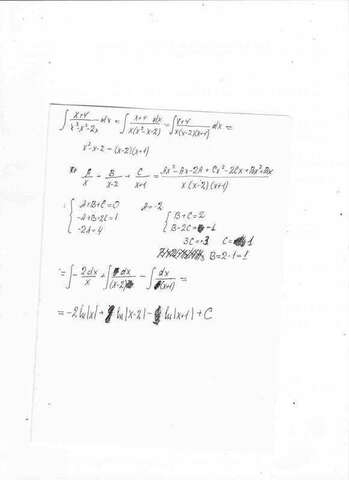 ∫ x+4 / x³-x²-2x dx = ∫ x+4 dx / x(x²-x-2) = ∫ x+4 / x(x-2)(x+1) dx =
x²-x-2 = (x-2)(x+1)
A/x + B/x-2 + C/x+1 = Ax²-Ax-2A+Cx²-2Cx+Bx²+Bx / x(x-2)(x+1)
{ A+B+C=0 A=-2
-A+B-2C=1 { B+C=2
-2A=4 B-2C=-1
3C=3 C=1
B=2-1=1
= ∫ - 2dx / x + ∫ dx / (x-2) - ∫ dx / (x+1) =
= -2 ln|x| + ln|x-2| - ln|x+1| + C